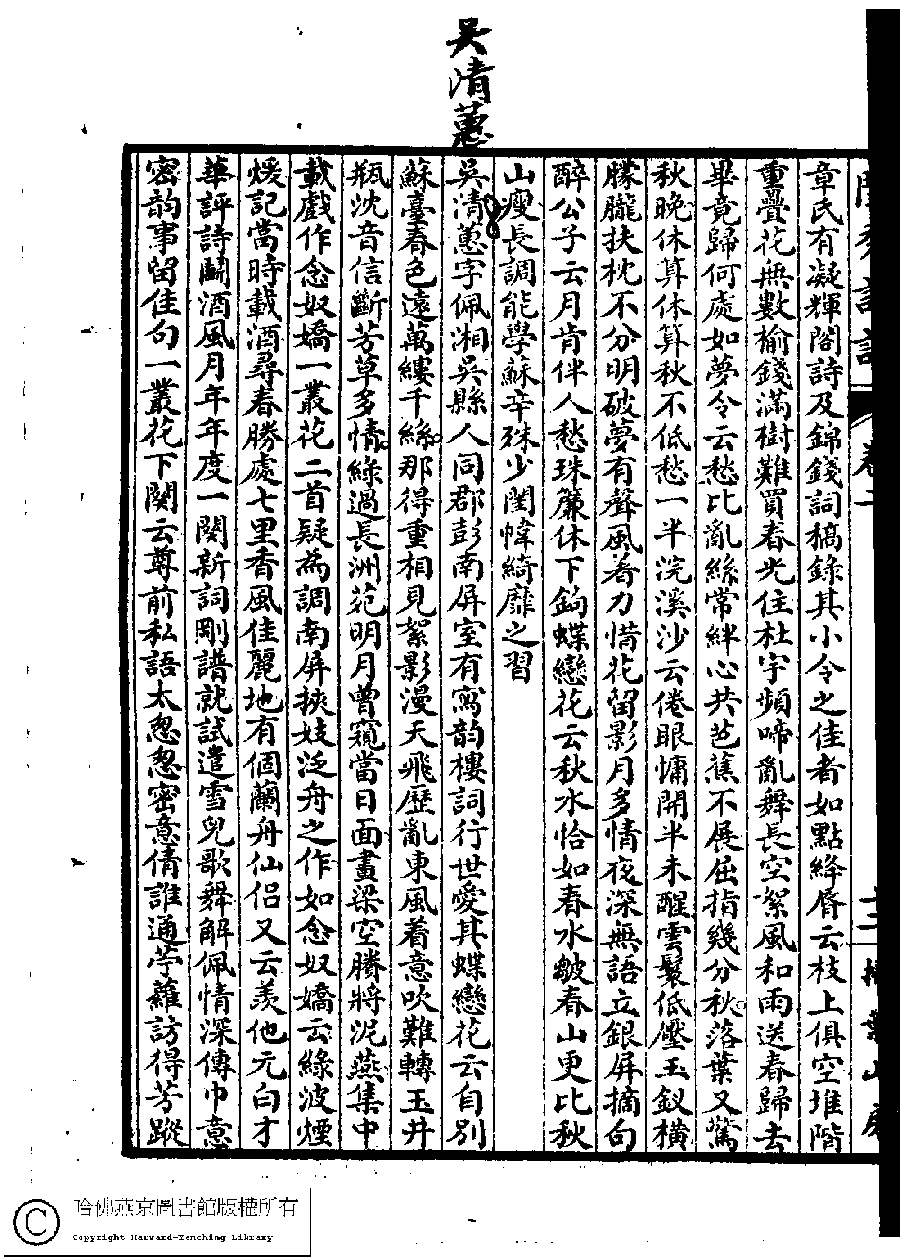 章氏有凝輝閣詩及錦錢詞稿錄其小令之佳者如點絳脣云枝上俱空堆階
重疊花無數榆錢滿樹難買春光住杜宇頻啼亂舞長空絮風和雨送春歸去
畢竟歸何處如夢令云愁比亂絲常絆心共芭蕉不展屈指幾分秋落葉又驚
秋晚休算休算秋不低愁一半浣溪沙云倦眼慵開半未醒雲鬟低壓玉釵橫
朦朧扶枕不分明破夢有聲風着力惜花留影月多情夜深無語立銀屏摘句
醉公子云月肯伴人愁珠簾休下鉤蝶戀花云秋水恰如春水皺春山更比秋
山瘦長調能學蘇辛殊少閨幃綺靡之習
吳清蕙
吳清蕙字佩湘吳縣人同郡彭南屏室有寫韵樓詞行世愛其蝶戀花云自別
蘇臺春色遠萬縷千絲那得重相見絮影漫天飛歷亂東風着意吹難轉玉井
瓶沈音信斷芳草多情綠過長洲苑明月曾窺當日面畫梁空勝將泥燕集中
載戲作念奴嬌一叢花二首疑為調南屏挾妓泛舟之作如念奴嬌云綠波煙
煖記當時載酒尋春勝處七里香風佳麗地有個蘭舟仙侶又云羨他元白才
華評詩鬭酒風月年年度一闋新詞剛譜就試遣雪兒歌舞解佩情深傳巾意
密韵事留佳句一叢花下闋云尊前私語太怱怱密意倩誰通苧蘿訪得芳蹤
卷二
哈佛燕京圖書館版權所有
Copyright Harvard-Yenching Library